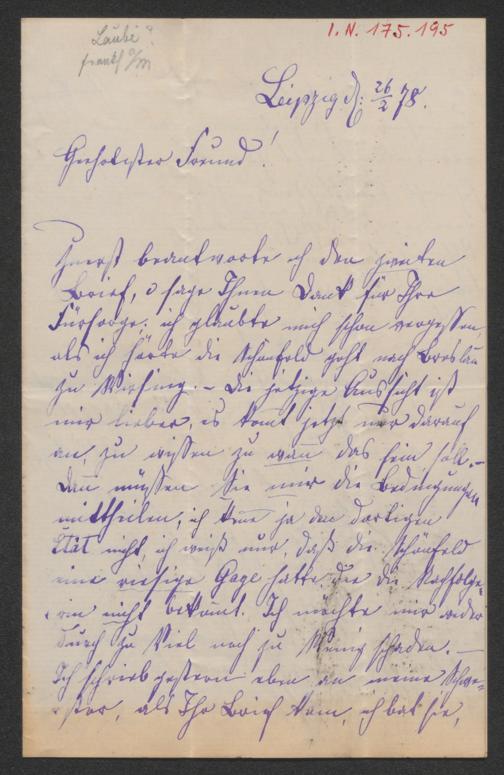 Laube?
Frankf a/M
I.N. 175.195
Leipzig d: 26/2 78.
Geehrtester Freund!
Zuerst beantworte ich den zweiten
Brief, u sage Ihnen Dank für Ihre
Fürsorge; ich glaubte mich schon vergessen,
als ich hörte die Schönfeld geht nach Breslau
zu Wirsing. – Die jetzige Aussicht ist
mir lieber, es komt jetzt nur darauf
an, zu wissen zu wan das sein soll. –
Dan müssen Sie mir die Bedingungen
mittheilen; ich kene ja den dortigen
Etat nicht, ich weiß nur, daß die Schönfeld
eine riesige Gage hatte die die Nachfolge-
rin nicht bekomt. Ich möchte mir weder
durch zu Viel noch zu Wenig schaden. –
Ich schrieb gestern eben an meine Schwe-
ster, als Ihr Brief kam, ich bat sie,